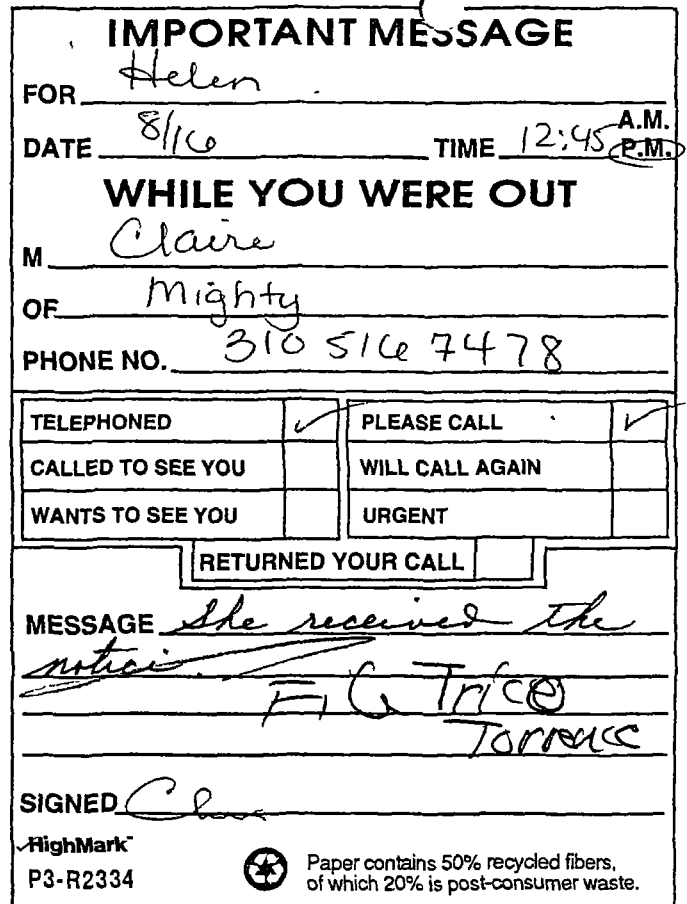 IMPORTANT MESSAGE
FOR Helen
DATE 8/16 TIME 12:45 A.M. P.M.
WHILE YOU WERE OUT
M Claire
OF Mighty
PHONE NO. 310 516 7478
TELEPHONED ✓ PLEASE CALL ✓
CALLED TO SEE YOU WILL CALL AGAIN
WANTS TO SEE YOU URGENT
RETURNED YOUR CALL
MESSAGE She received the
notice.
Trice
Torrence
SIGNED
HighMark™
P3-R2334
Paper contains 50% recycled fibers,
of which 20% is post-consumer waste.